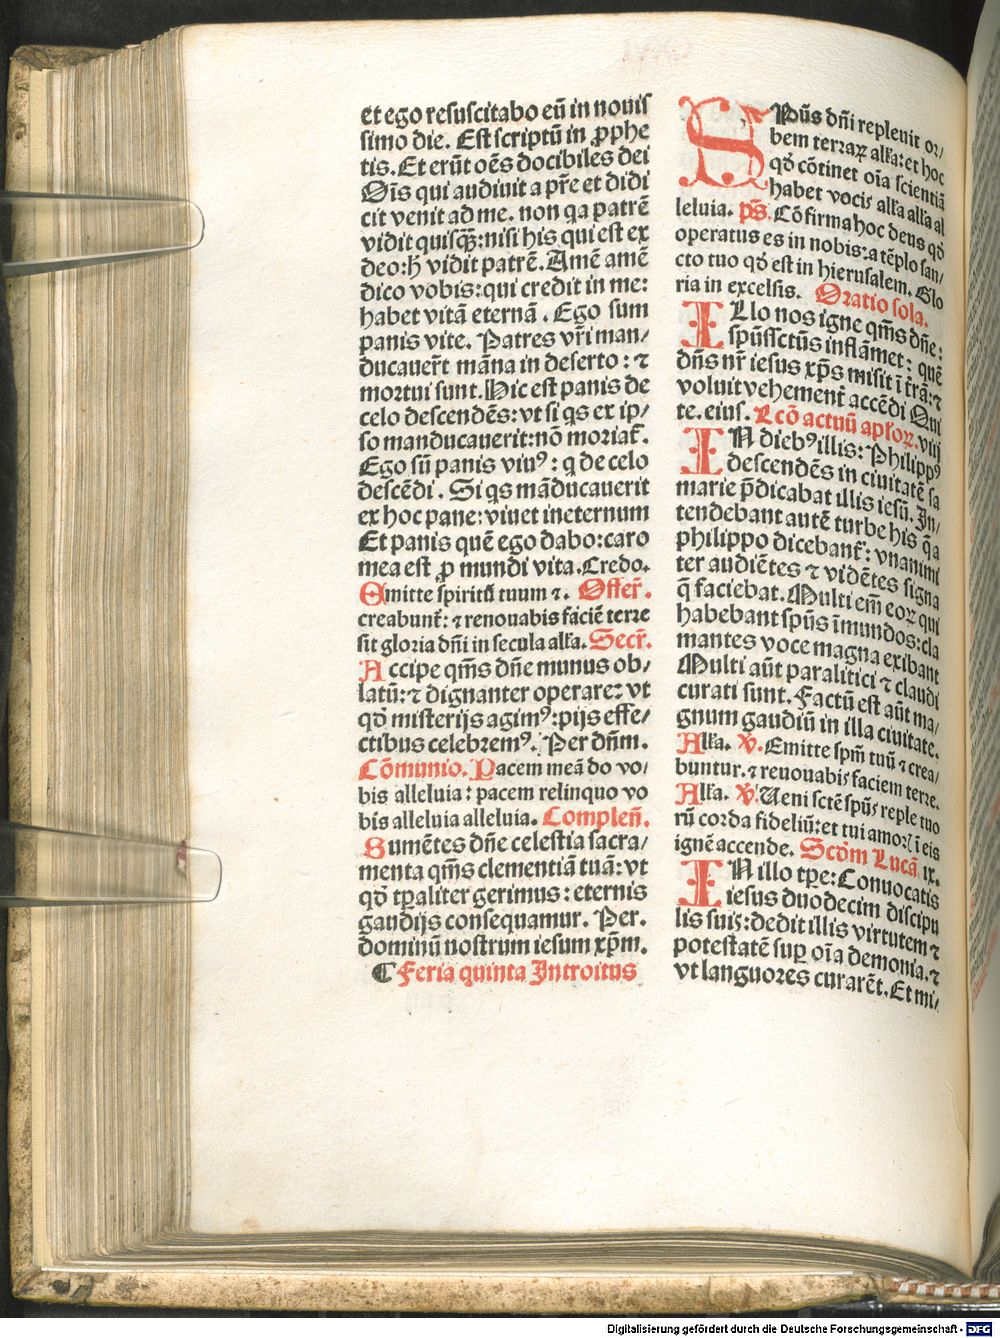 et ego resuscitabo eũ in nouis
simo die. Est scriptũ in ꝓphe
tis. Et erũt oẽs docibiles dei
Oĩs qui audiuit a pr̃e et didi
cit venit ad me. non qa patrẽ
vidit quisqꝫ: nisi his qui est ex
deo: h̃ vidit patrẽ. Amẽ amẽ
dico vobis: qui credit in me:
habet vitã eternã. Ego sum
panis vite. Patres vr̃i man/
ducauer̃t mãna in deserto: ⁊
mortui sunt. Hic est panis de
celo descendẽs: vt si qs ex ip/
so manducauerit: nõ moriat̃.
Ego sũ panis viuꝰ: q de celo
descẽdi. Si qs mãducauerit
ex hoc pane: viuet ineternum
Et panis quẽ ego dabo: caro
mea est ꝓ mundi vita. Credo.
Emitte spiritũ tuum ⁊. Offer̃.
creabunt̃: ⁊ renouabis faciẽ terre
sit gloria dñi in secula alľa. Secr̃.
Accipe qm̃s dñe munus ob/
latũ: ⁊ dignanter operare: vt
qď misterijs agimꝰ: pijs effe/
ctibus celebremꝰ. Per dñm.
Cõmunio. Pacem meã do vo/
bis alleluia: pacem relinquo vo
bis alleluia alleluia. Compleñ.
Sumẽtes dñe celestia sacra/
menta qm̃s clementiã tuã: vt
qď tꝑaliter gerimus: eternis
gaudijs consequamur. Per.
dominũ nostrum iesum xp̃m.
¶ Feria quinta Introitus
Spũs dñi repleuit or/
bem terraꝝ alľa: et hoc
qď cõtinet oĩa scientiã
habet vocis alľa alľa al
leluia. ps̃. Cõfirma hoc deus qď
operatus es in nobis: a tẽplo san/
cto tuo qď est in hierusalem. Glo
ria in excelsis. Oratio sola.
Illo nos igne qm̃s dñe:
spũssctũs inflãmet: quẽ
dñs nr̃ iesus xp̃s misit ĩ tr̃ã: ⁊
voluit vehement̃ accẽdi Qui
te. eius. Lcõ actuũ apľoꝝ. viij
IN diebꝰ illis: Philippꝰ
descendẽs in ciuitatẽ sa
marie p̃dicabat illis iesũ. In/
tendebant autẽ turbe his q̃ a
philippo dicebant̃: vnanimi
ter audiẽtes ⁊ vidẽtes signa
q̃ faciebat. Multi em̃ eoꝝ qui
habebant spũs ĩmundos: cla
mantes voce magna exibant
Multi aũt paralitici ⁊ claudi
curati sunt. Factũ est aũt ma/
gnum gaudiũ in illa ciuitate.
Alľa. ℣. Emitte spm̃ tuũ ⁊ crea/
buntur. ⁊ renouabis faciem terre.
Alľa. ℣. Ueni sctẽ spũs reple tuo
rũ corda fideliũ: et tui amor̃ ĩ eis
ignẽ accende. Scďm Lucã ix.
IN illo tꝑe: Conuocatis
iesus duodecim discipu
lis suis: dedit illis virtutem ⁊
potestatẽ suꝑ oĩa demonia. ⁊
vt languores curarẽt. Et mi/
Digitalisierung gefördert durch die Deutsche Forschungsgemeinschaft - DFG